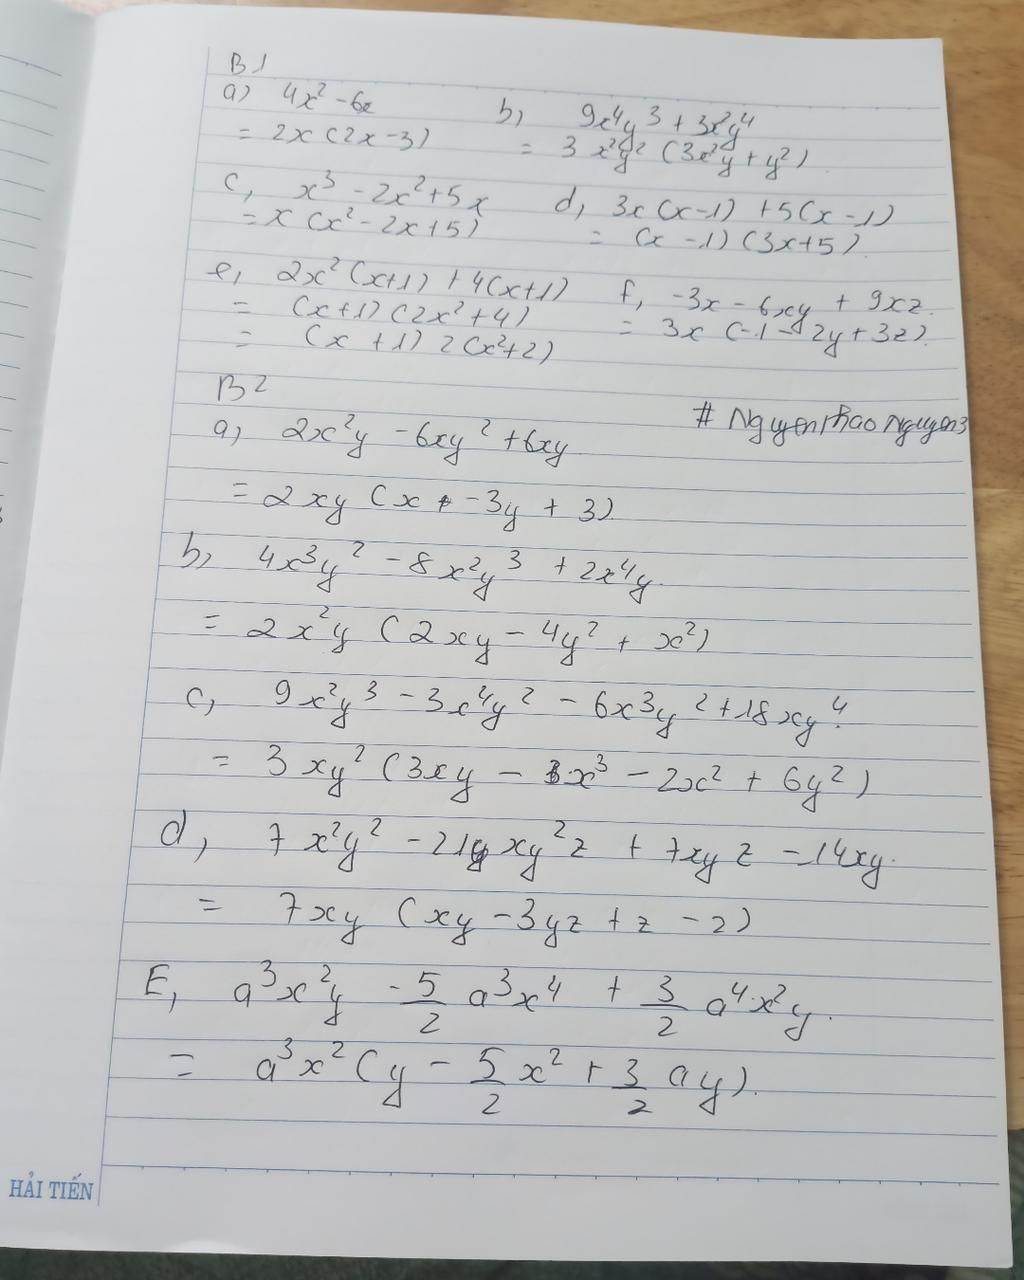 B1
a) 4x² - 6x
= 2x (2x - 3)
b, 9x⁴y³ + 3x²y⁴
= 3x²y² (3x²y + y²)
c, x³ - 2x² + 5x
= x (x² - 2x + 5)
d, 3x (x - 1) + 5(x - 1)
= (x - 1) (3x + 5).
e, 2x² (x+1) + 4(x+1)
= (x+1) (2x² + 4)
= (x + 1) 2(x² + 2)
f, -3x - 6xy + 9xz.
= 3x (-1 - 2y + 3z).
B2
# NguyenThaoNguyen3
a, 2x²y - 6xy² + 6xy
= 2xy (x - 3y + 3)
b, 4x³y² - 8x²y³ + 2x⁴y.
= 2x²y (2xy - 4y² + x²)
c, 9x²y³ - 3x⁴y² - 6x³y² + 18xy⁴.
= 3xy² (3xy - x³ - 2x² + 6y²)
d, 7x²y² - 21xy²z + 7xyz - 14xy.
= 7xy (xy - 3yz + z - 2)
E, a³x²y - 5/2 a³x⁴ + 3/2 a⁴x²y.
= a³x² (y - 5/2 x² + 3/2 ay).
HẢI TIẾN